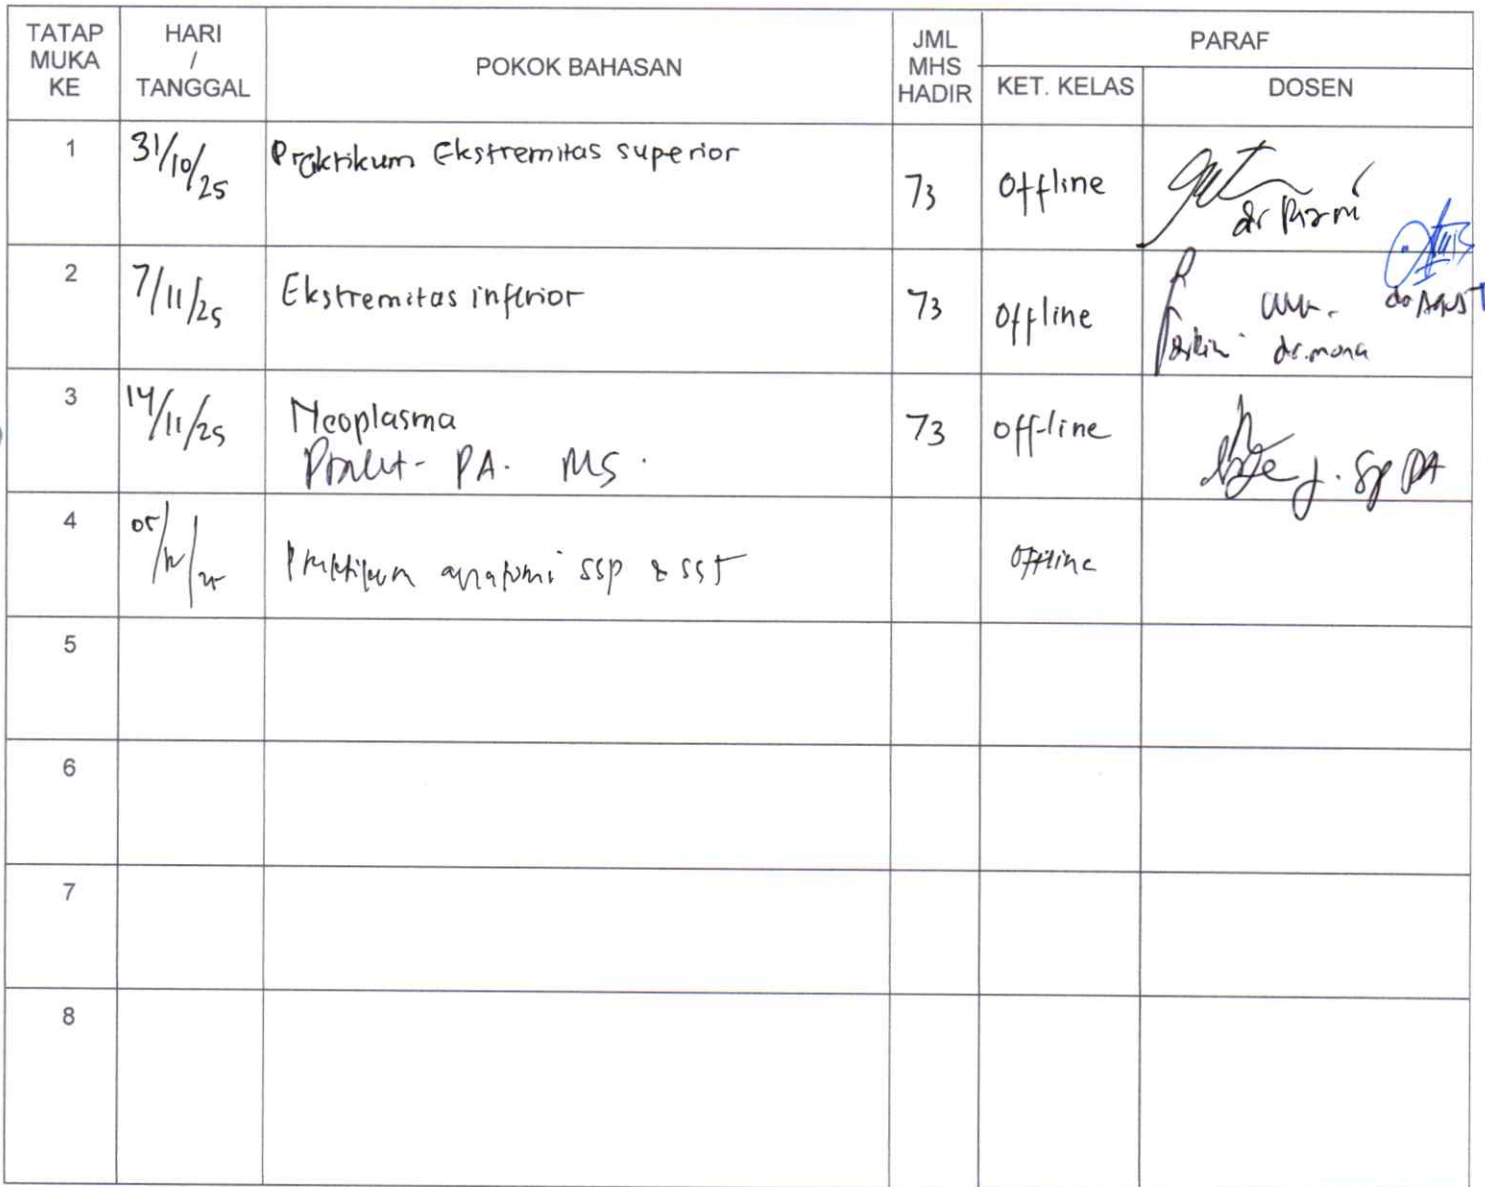 TATAP MUKA KE
HARI / TANGGAL
POKOK BAHASAN
JML MHS HADIR
PARAF
KET. KELAS
DOSEN
1
31/10/25
Praktikum Ekstremitas superior
73
Offline
dr
2
7/11/25
Ekstremitas inferior
73
Offline
dr.mona
3
14/11/25
Neoplasma
73
Off-line
PA. MS.
Sp PA
4
05/12/25
Praktikum anatomi SSP & SST
Offline
5
6
7
8